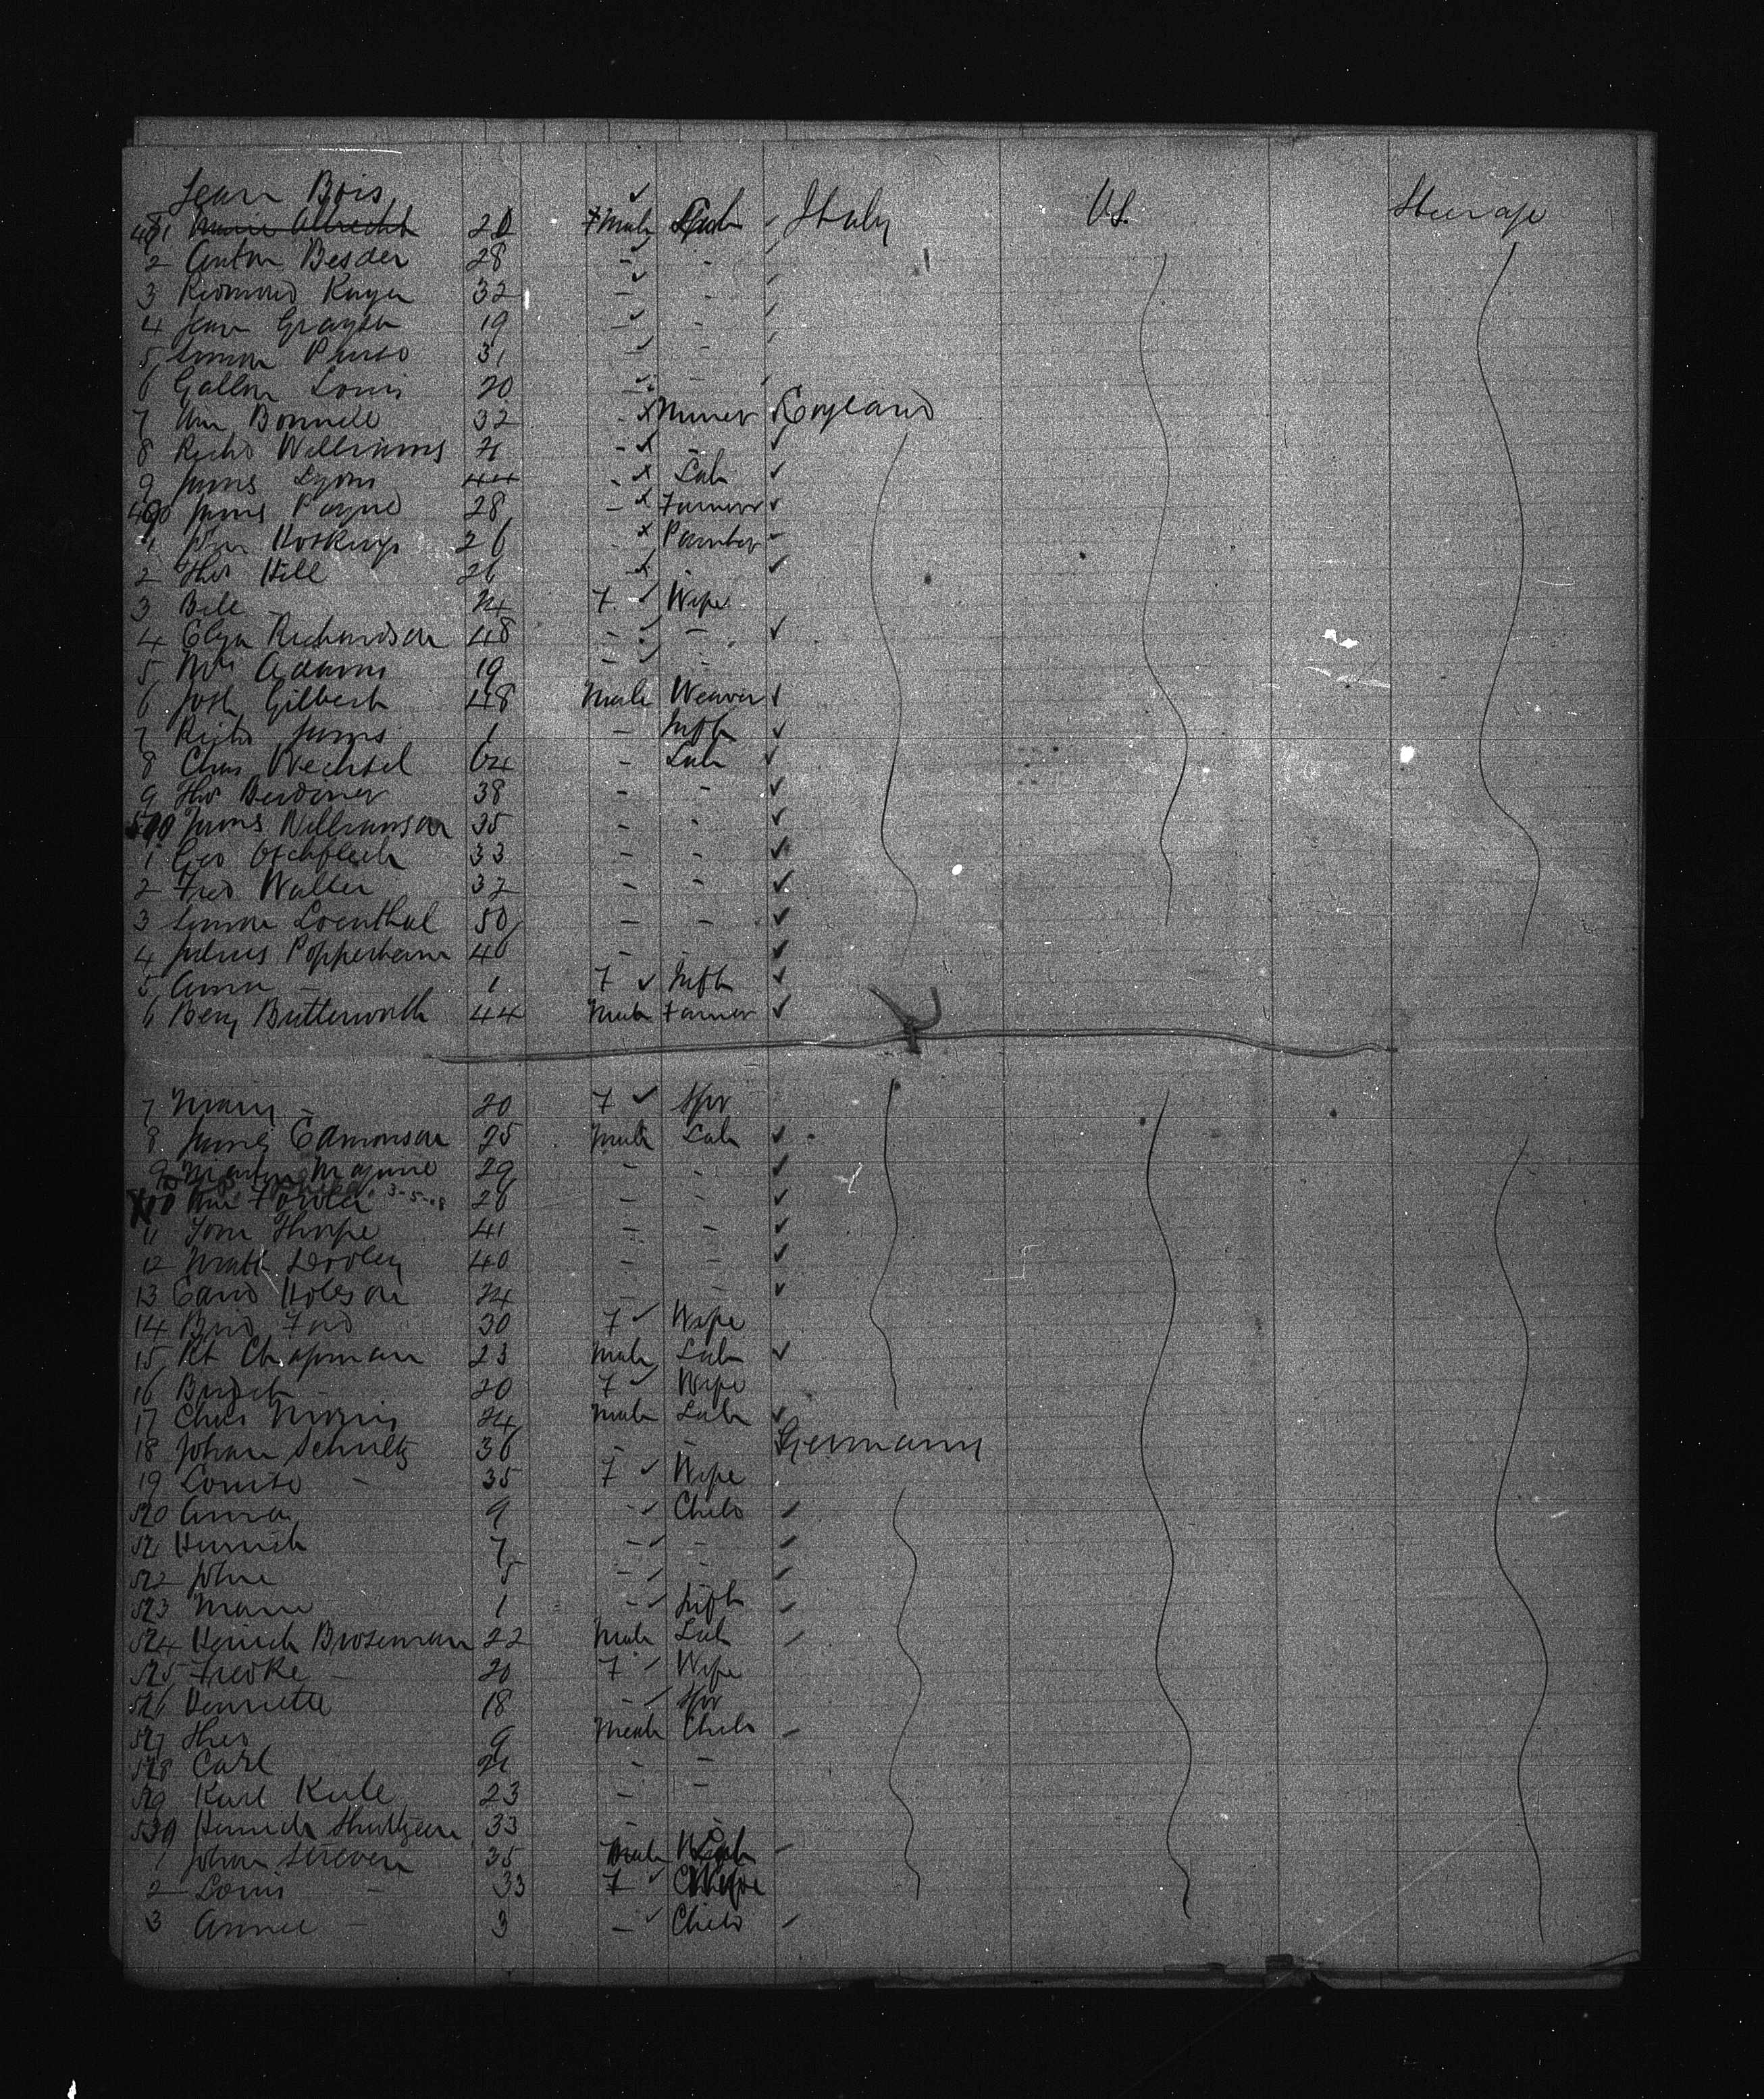 Jean Bois ✓
481 Marie Albrecht 20 Male Lab Italy U.S. Steerage
2 Anton Besder 28 - -
3 Kayer 32 - -
4 Jean 19 - -
5 Simon 31 - -
6 Louis 20 - -
7 Wm Bonnell 32 - x Miner England
8 Richd Williams 21 - x -
9 James Lyons 44 - x Lab ✓
490 James Payne 28 - x Farmer ✓
1 Wm Hoskings 26 x Painter
2 Thos Hill 26 x ✓
3 Bile - 24 F ✓ Wife
4 Eliza Richardson 48 - ✓ - ✓
5 Mrs Adams 19 - ✓ -
6 Josh Gilbert 48 Male Weaver ✓
7 Richd James 1 - Inft ✓
8 Chas Wechsel 64 - Lab ✓
9 Thos 38 - - ✓
500 James Williamson 35 - - ✓
1 Geo 33 - - ✓
2 Fred Walter 32 - - ✓
3 Simon Loenthal 50 - - ✓
4 Julius Popperbaum 40 - - ✓
5 Anna - 1 F ✓ Inft ✓
6 Benj Butterworth 44 Male Farmer ✓
7 Mary - 20 F ✓ Spr
8 James Edmonson 25 Male Lab ✓
9 Martin Maguire 29 - - ✓
10 Wm Fowler 3-5-08 26 - - ✓
11 Tom Thorpe 41 - - ✓
12 Matt Dooley 40 - - ✓
13 Edwd Hobson 24 - - ✓
14 Brid Ford 30 F ✓ Wife
15 Rt Chapman 23 Male Lab ✓
16 Bridget - 20 F ✓ Wife
17 Chas Morris 24 Male Lab ✓
18 Johan Schultz 36 - - Germany
19 Louise - 35 F ✓ Wife
520 Anna 9 - ✓ Child
521 Heinrich 7 - ✓ -
522 John 5 - ✓ -
523 Marie 1 - ✓ Inft
524 Heinrich Broseman 22 Male Lab
525 Fredke - 20 F ✓ Wife
526 Henriette 18 - ✓ Spr
527 Theo 9 Male Child
528 Carl 21 - -
529 Karl Kule 23 - -
530 Heinrich 33 -
1 Johan 35 Male Lab
2 Louis - 33 F ✓ Wife
3 Annie - 3 - ✓ Child